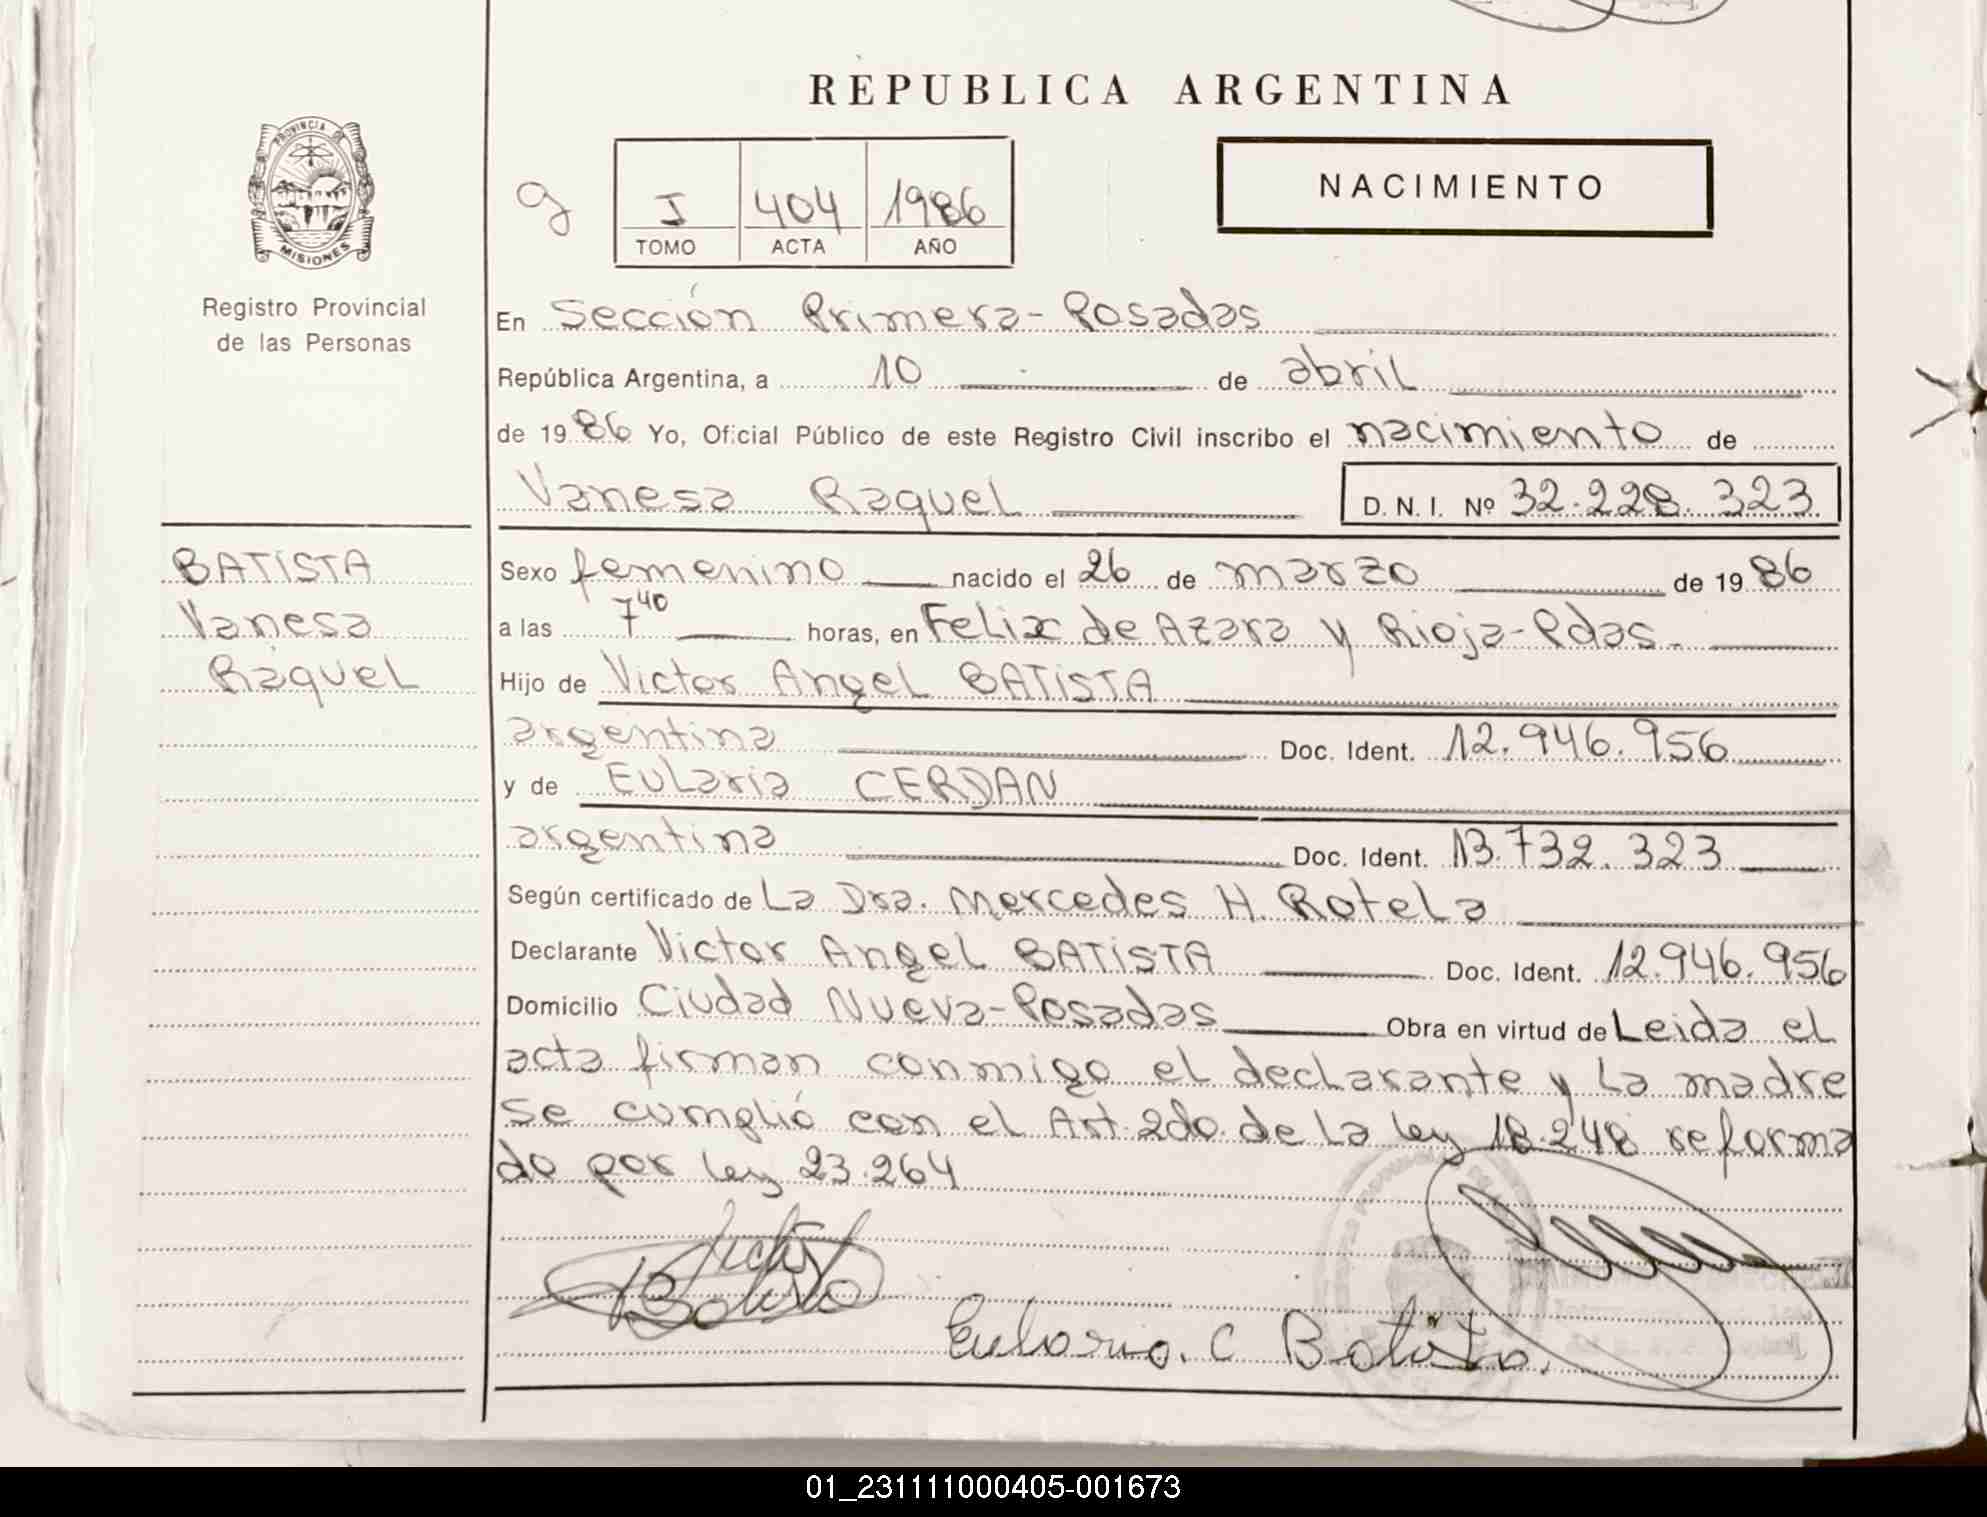 REPUBLICA ARGENTINA
PROVINCIA DE
MISIONES
Registro Provincial
de las Personas
g
I 404 1986
TOMO ACTA AÑO
NACIMIENTO
En Sección Primera-Posadas
República Argentina, a 10 de abril
de 19 86 Yo, Oficial Público de este Registro Civil inscribo el nacimiento de
Vanesa Raquel D. N. I. Nº 32.228.323
BATISTA
Vanesa
Raquel
Sexo femenino nacido el 26 de marzo de 19 86
a las 7 40 horas, en Felix de Azara y Rioja-Pdas.
Hijo de Victor Angel BATISTA
argentina Doc. Ident. 12.946.956
y de Eularia CERDAN
argentina Doc. Ident. 13.732.323
Según certificado de La Dra. Mercedes H. Rotela
Declarante Victor Angel BATISTA Doc. Ident. 12.946.956
Domicilio Ciudad Nueva-Posadas Obra en virtud de Leida el
acta firman conmigo el declarante y La madre
se cumplió con el Art. 2do. de La Ley 18.248 reforma
do por Ley 23.264
Victor
Batista
Eularia. C Batista.
01_231111000405-001673